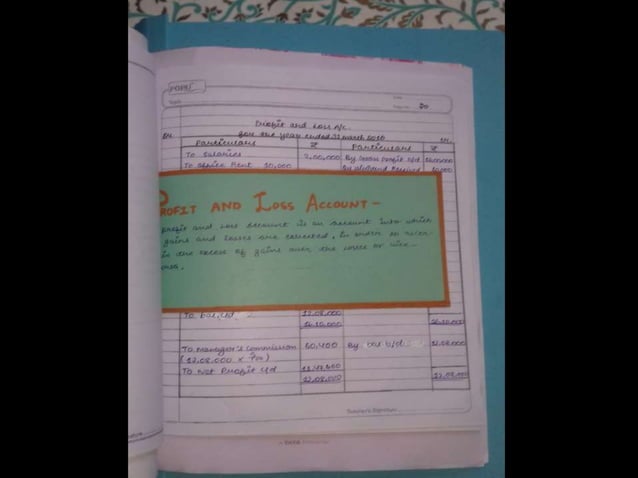 Profit and Loss A/c.
for the year ended 31 march 2016
Dr. Cr.
Particulars ₹ Particulars ₹
To Salaries 2,00,000 By Gross Profit b/d
To Office Rent 20,000 By dividend Received 10,000
PROFIT AND LOSS ACCOUNT -
profit and loss account is an account into which
gains and losses are collected, in order to
in the excess of gains over the losses or vice-
To bal. c/d 12,08,000
To Manager's Commission 60,400 By bal b/d 12,08,000
(12,08,000 x
To Net Profit c/d 11,47,600
12,08,000 12,08,000
Teacher's Signature